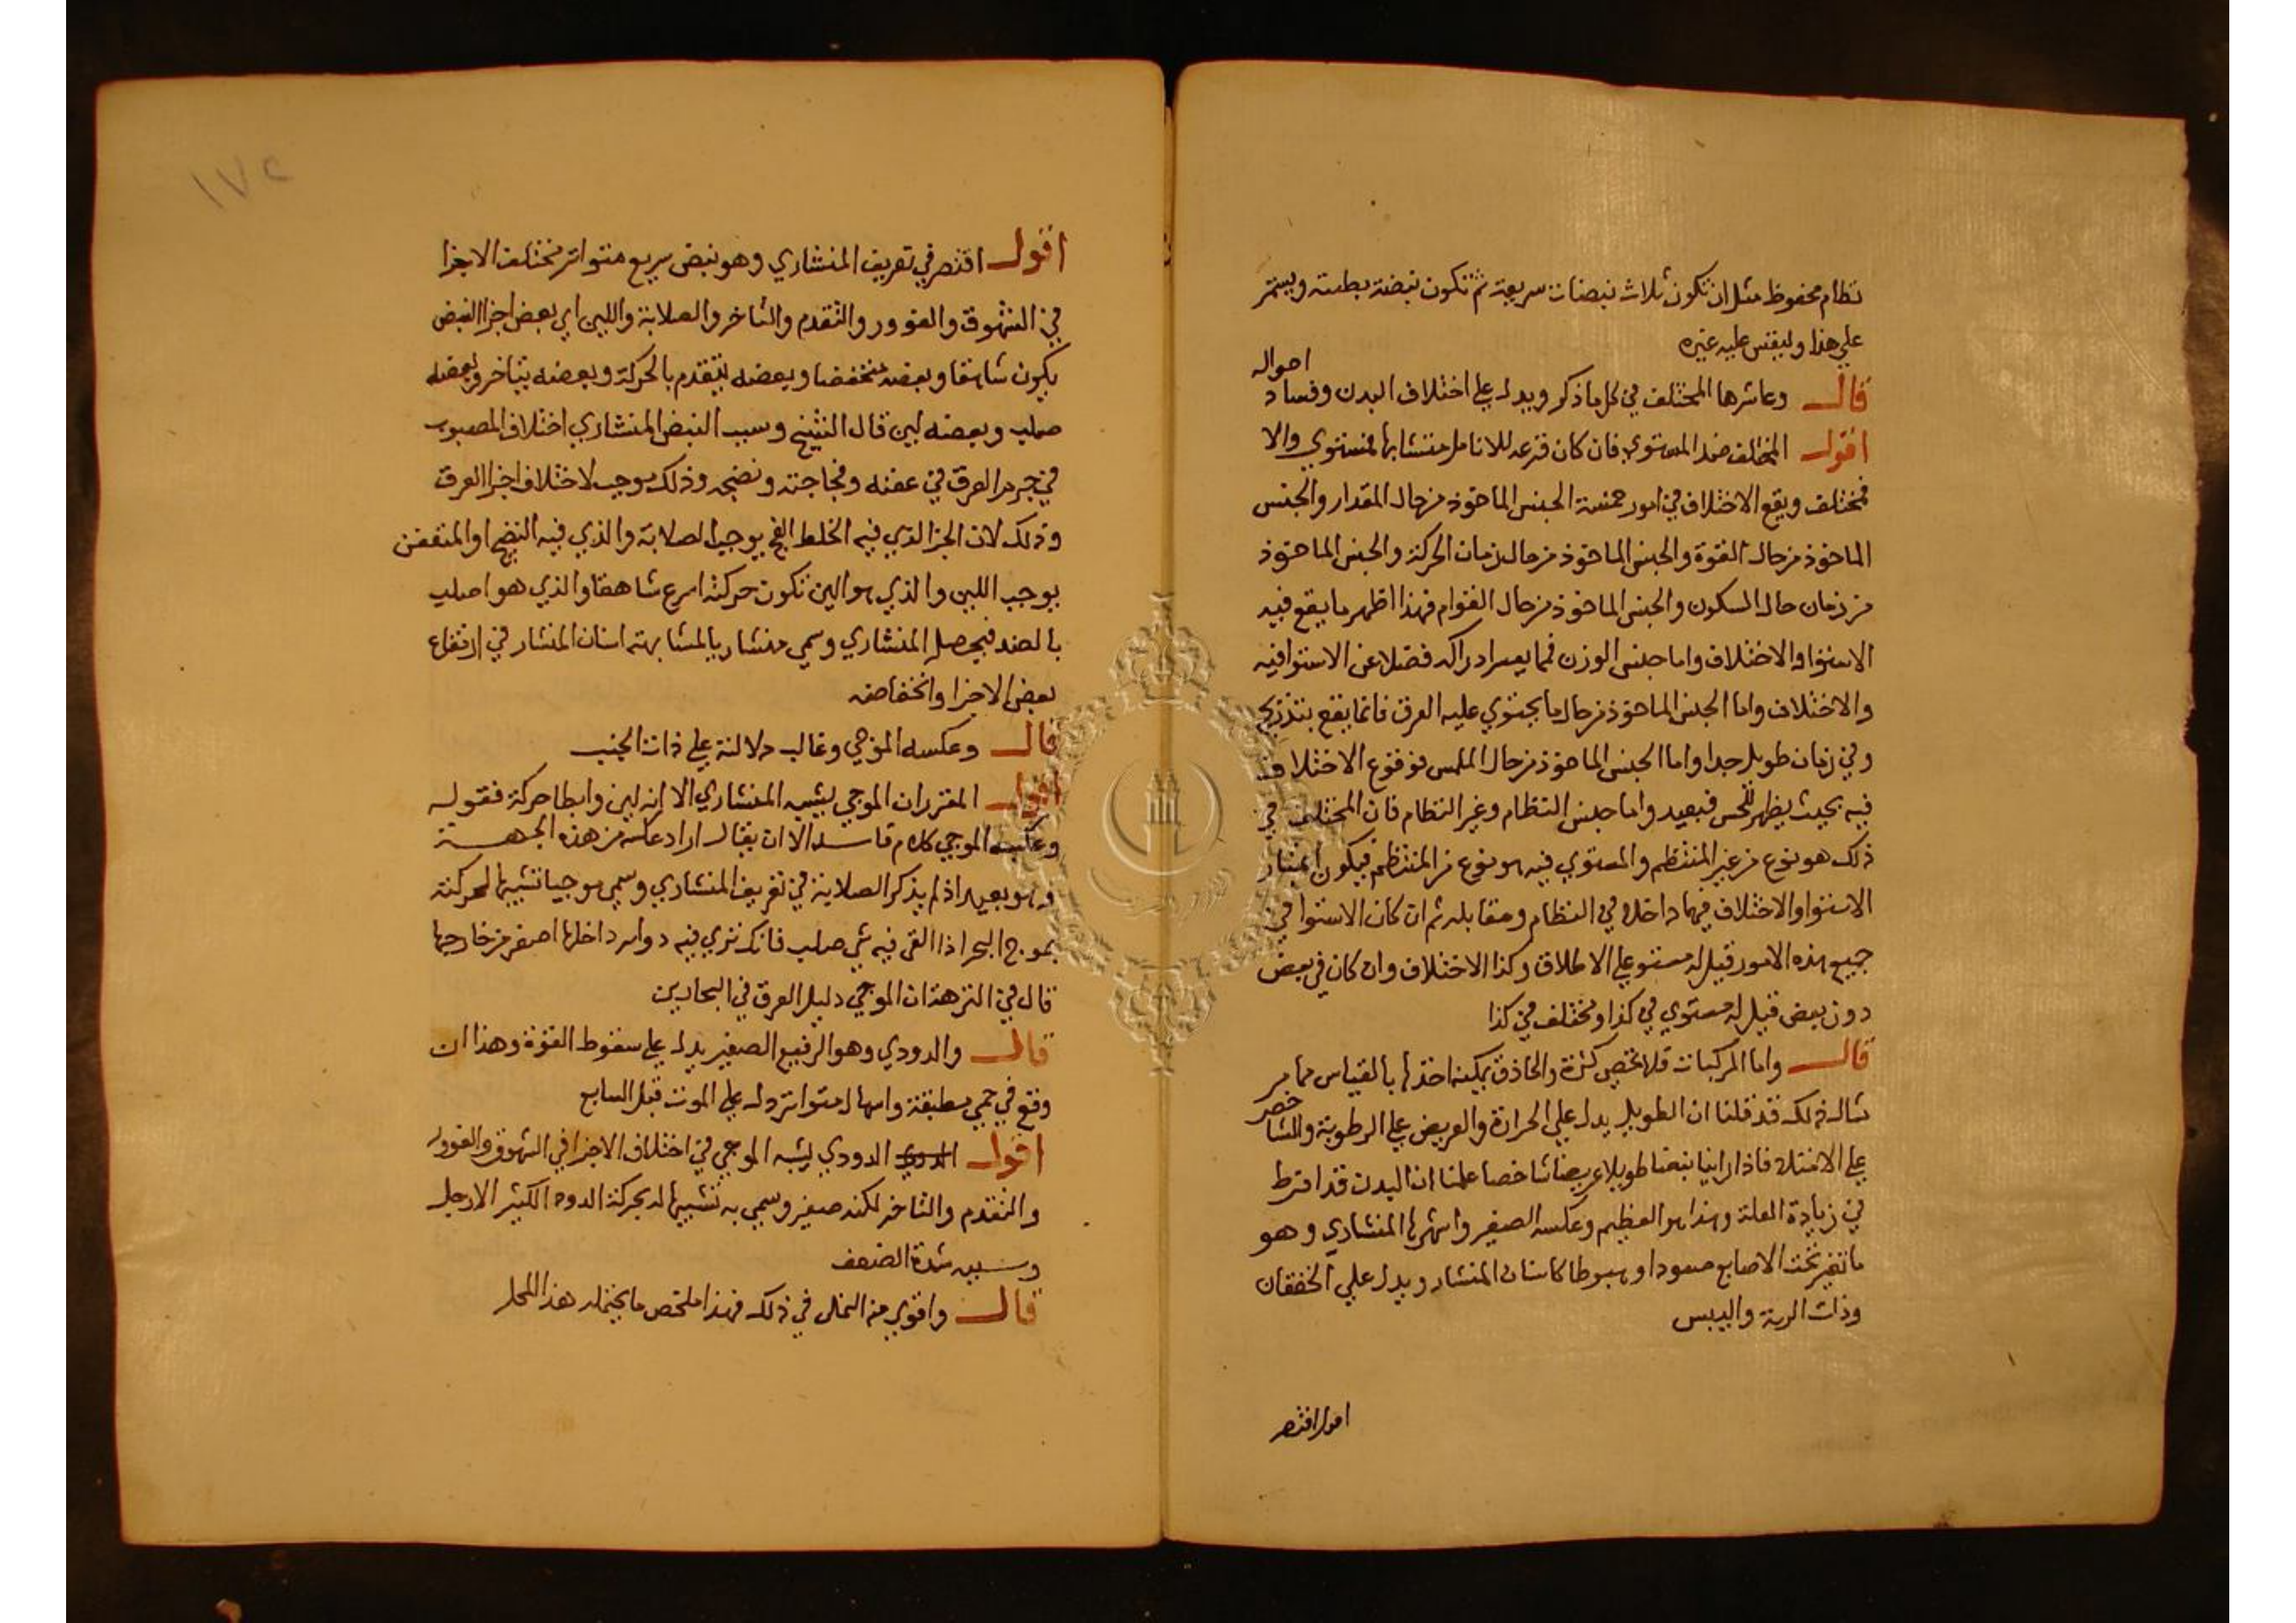 نظام محفوظ مثل ان تكون ثلاث نبضات سريعة ثم تكون نبضة بطيئة ويستمر
على هذا وليقس عليه غيره
قال وعاشرها المختلف في كل ما ذكر ويدل على اختلاف البدن وفساد احواله
اقول المختلف ضد المستوي فان كان قرعه للانامل متشابها فمستوي والا
فمختلف ويقع الاختلاف في امور خمسة الجنس الماخوذ من حال المقدار والجنس
الماخوذ من حال القوة والجنس الماخوذ من حال زمان الحركة والجنس الماخوذ
من زمان حال السكون والجنس الماخوذ من حال القوام فهذا اظهر ما يقع فيه
الاستوا والاختلاف واما جنس الوزن فما يعسر ادراكه فضلا عن الاستوا فيه
والاختلاف واما الجنس الماخوذ من حال ما يحتوي عليه العرق فانما يقع بتدريج
وفي زمان طويل جدا واما الجنس الماخوذ من حال الملمس فوقوع الاختلاف
فيه بحيث يظهر للحس فبعيد واما جنس النظام وغير النظام فان المختلف في
ذلك هو نوع من غير المنتظم والمستوي فيه هو نوع من المنتظم فيكون اعتبار
الاستوا والاختلاف فيها داخلا في النظام ومقابله ثم ان كان الاستوا في
جميع هذه الامور قيل له مستو على الاطلاق وكذا الاختلاف وان كان في بعض
دون بعض قيل له مستوي في كذا ومختلف في كذا
قال واما المركبات فلا تحصى كثرة والحاذق يمكنه اخذها بالقياس مما مر
مثال ذلك قد قلنا ان الطويل يدل على الحرارة والعريض على الرطوبة والشاخص
على الامتلا فاذا راينا نبضا طويلا عريضا شاخصا علمنا ان البدن قد افرط
في زيادة العلة وهذا هو العظيم وعكسه الصغير واشهرها المنشاري وهو
ما تغير تحت الاصابع صعودا وهبوطا كاسنان المنشار ويدل على الخفقان
وذات الرية واليبس
اقول اقتصر
١٧٢
اقول اقتصر في تعريف المنشاري وهو نبض سريع متواتر مختلف الاجزا
في الشهوق والغوور والتقدم والتاخر والصلابة واللين اي بعض اجزا النبض
يكون شاهقا وبعضه منخفضا وبعضه يتقدم بالحركة وبعضه يتاخر وبعضه
صلب وبعضه لين قال الشيخ وسبب النبض المنشاري اختلاف المصبوب
في جرم العرق في عفنه وفجاجته ونضجه وذلك موجب لاختلاف اجزا العرق
وذلك لان الجز الذي فيه الخلط الفج يوجب الصلابة والذي فيه النضج او المتعفن
يوجب اللين والذي هو الين تكون حركته اسرع شاهقا والذي هو اصلب
بالضد فيحصل المنشاري وسمي منشاريا لمشابهته اسنان المنشار في ارتفاع
بعض الاجزا وانخفاضه
قال وعكسه الموجي وغالب دلالته على ذات الجنب
اقول المقرر ان الموجي يشبه المنشاري الا انه لين وابطا حركة فقوله
وعكسه الموجي كلام فاسد الا ان يقال اراد عكسه من هذه الجهة
وهو بعيد اذ لم يذكر الصلابة في تعريف المنشاري وسمي موجيا تشبيها لحركته
بموج البحر اذا القى فيه شي صلب فانك ترى فيه دواير داخلها اصغر من خارجها
قال في النزهة ان الموجي دليل العرق في البحارين
قال والدودي وهو الرفيع الصغير يدل على سقوط القوة وهذا ان
وقع في حمى مطبقة واسهال متواتر دل على الموت قبل السابع
اقول الدودي يشبه الموجي في اختلاف الاجزا في الشهوق والغوور
والتقدم والتاخر لكنه صغير وسمي به تشبيها له بحركة الدود الكثير الارجل
وسببه شدة الضعف
قال واقوى منه النملي في ذلك فهذا ملخص ما يحتمله هذا المحل